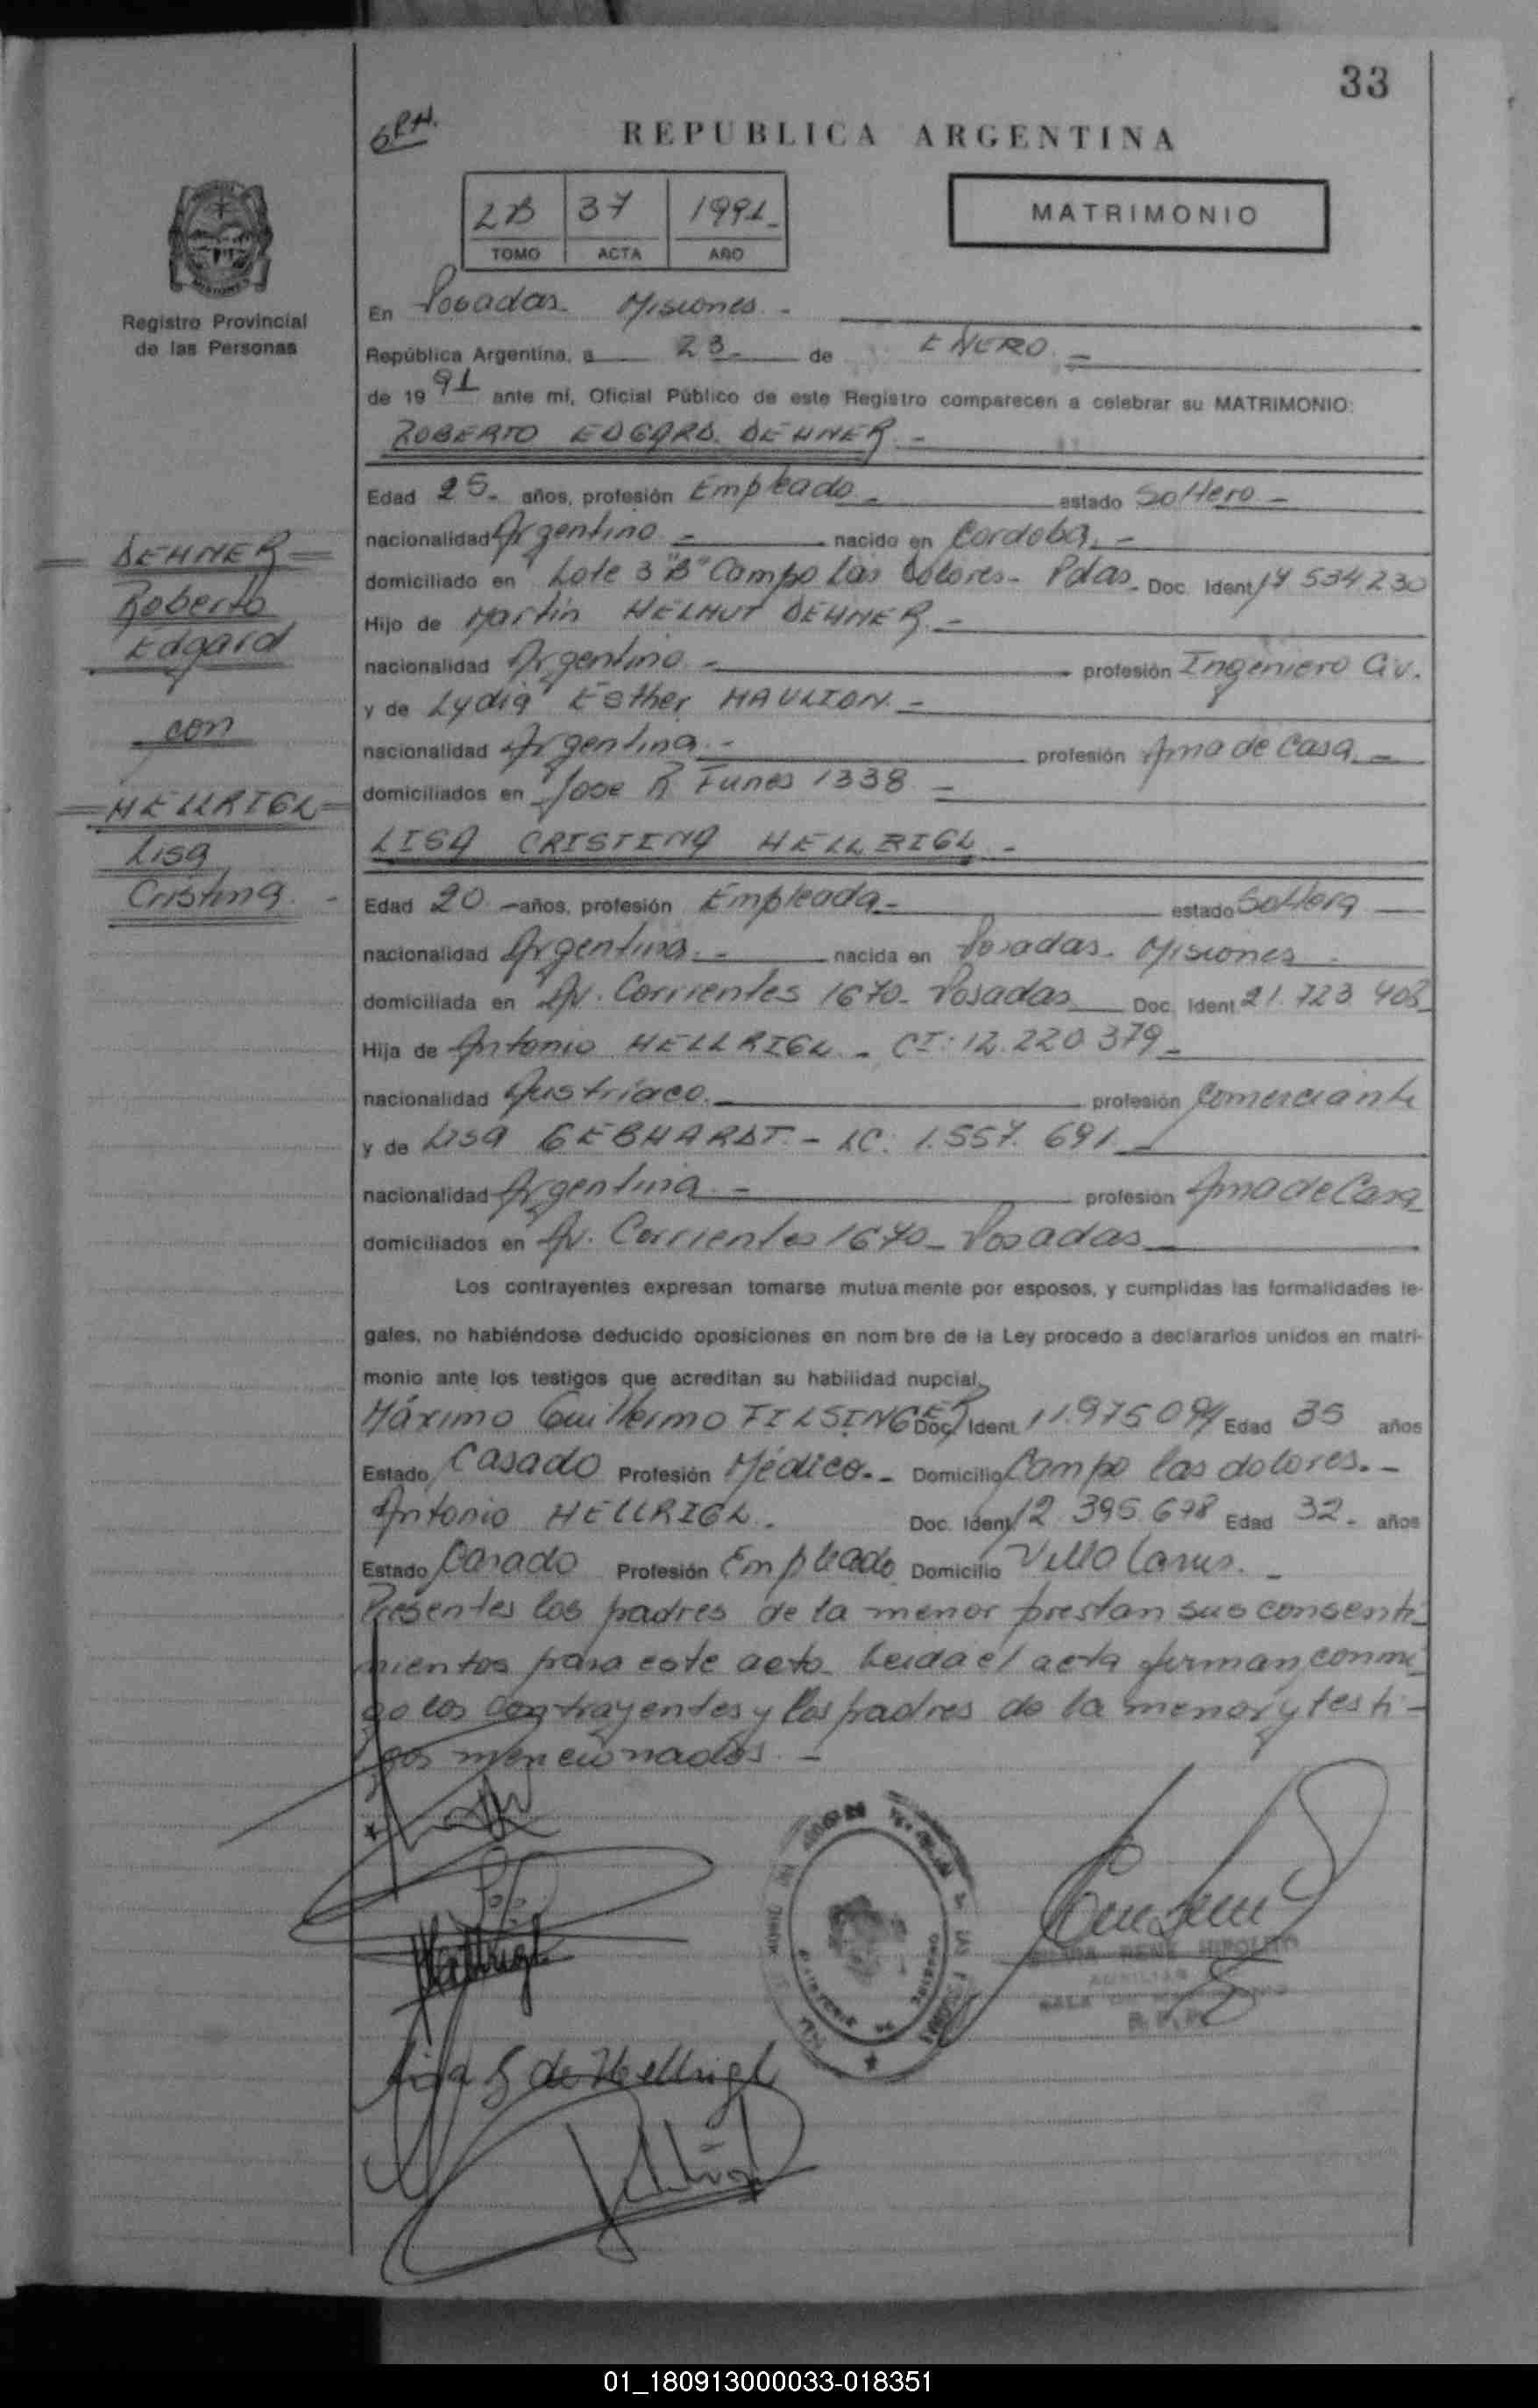 33
REPUBLICA ARGENTINA
MATRIMONIO
2B 37 1991
TOMO ACTA AÑO
Registro Provincial
de las Personas
En Posadas Misiones -
República Argentina, a 23 de ENERO
de 1991 ante mí, Oficial Público de este Registro comparecen a celebrar su MATRIMONIO:
ROBERTO EDGARD DEHNER -
Edad 25 - años, profesión Empleado - estado Soltero -
nacionalidad Argentino - nacido en Cordoba. -
domiciliado en Lote 3 "B" Campo Las Dolores - Pdas - Doc. Ident. 17 534 230
Hijo de Martin HELMUT DEHNER. -
nacionalidad Argentino - profesión Ingeniero Civ.
y de Lydia Esther MAULION -
nacionalidad Argentina - profesión Ama de Casa -
domiciliados en Jose R Funes 1338 -
DEHNER
Roberto
Edgard
con
HELLRIGL
Lisa
Cristina
LISA CRISTINA HELLRIGL -
Edad 20 - años, profesión Empleada - estado Soltera
nacionalidad Argentina. - nacida en Posadas - Misiones
domiciliada en Av. Corrientes 1670 - Posadas Doc. Ident. 21.723 408
Hija de Antonio HELLRIGL - CI: 12.220 379 -
nacionalidad Austríaco. profesión Comerciante
y de Lisa GEBHARDT - LC: 1.557.691
nacionalidad Argentina - profesión Ama de Casa
domiciliados en Av. Corrientes 1670 - Posadas
Los contrayentes expresan tomarse mutuamente por esposos, y cumplidas las formalidades le-
gales, no habiéndose deducido oposiciones en nombre de la Ley procedo a declararlos unidos en matri-
monio ante los testigos que acreditan su habilidad nupcial,
Máximo Guillermo FILSINGER Doc. Ident. 11.975 094 Edad 35 años
Estado Casado Profesión Médico. - Domicilio Campo las dolores. -
Antonio HELLRIGL. Doc. Ident. 12 395.678 Edad 32 - años
Estado Casado Profesión Empleado Domicilio Villa Lanus. -
Presentes los padres de la menor prestan sus consenti-
mientos para este acto. Leida el acta firman conmi-
go los contrayentes y los padres de la menor y testi-
gos mencionados. -
Hellrigl
Lisa G de Hellrigl
RENE HIPOLITO
AUXILIAR
01_180913000033-018351